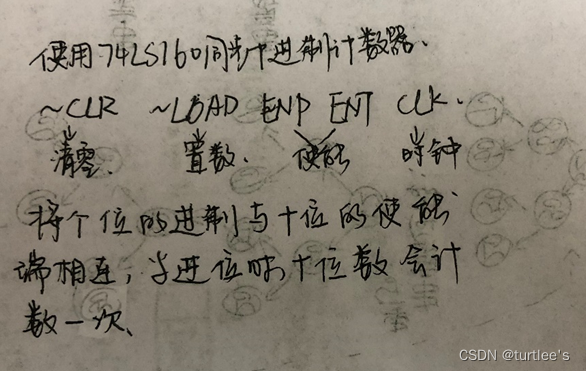 使用74LS160同步十进制计数器.
~CLR ~LOAD ENP ENT CLK.
清零. 置数. 使能 时钟
将个位的进制与十位的使能
端相连，当进位时，十位数会计
数一次、
CSDN @turtlee's